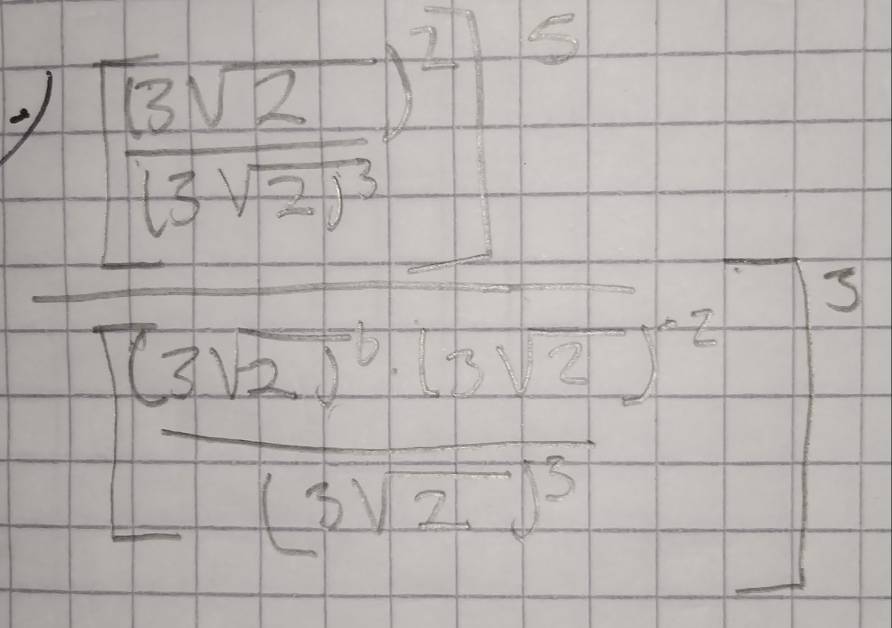 ) [(3√2)² / (3√2)³]⁵
[(3√2)⁶ · (3√2)⁻² / (3√2)³]³